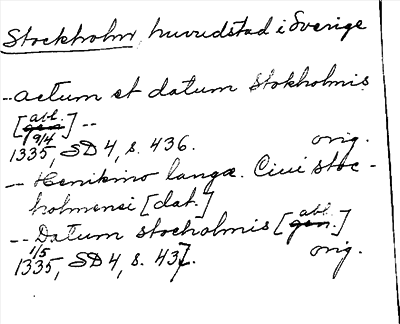 Stockholm, huvudstad i Sverige
-- actum et datum Stokholmis
[abl. gen] --
9/4
1335, SD 4, s. 436. orig.
-- Henikino langæ. Ciui stoc-
holmensi [dat.]
-- Datum stocholmis [abl. gen.]
1/5
1335, SD 4, s. 437. orig.